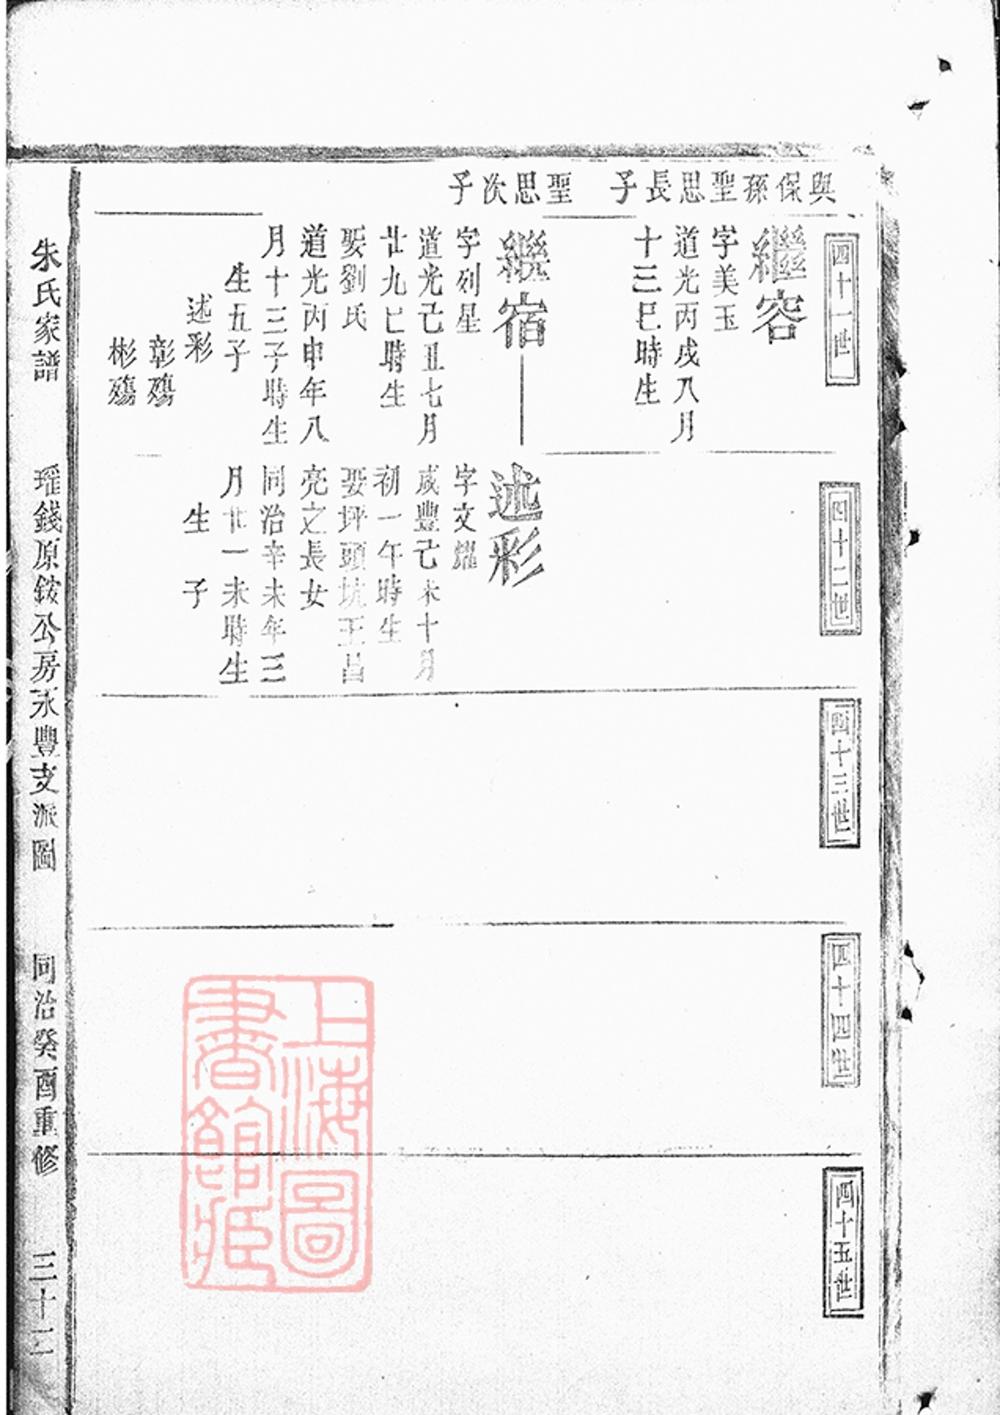 四十一世
與保孫聖思長子
繼容
字美玉
道光丙戌八月
十三巳時生
聖思次子
繼宿
字列星
道光己丑七月
廿九巳時生
娶劉氏
道光丙申年八
月十三子時生
生五子
述彩
彰殤
彬殤
四十二世
述彩
字文耀
咸豐己未十月
初一午時生
娶坪頭坑王昌
亮之長女
同治辛未年三
月廿一未時生
生 子
四十三世
四十四世
四十五世
朱氏家譜
錢原
公房永豐支派圖
同治癸酉重修
三十三
上海圖
書館藏